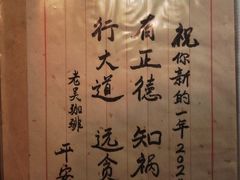 祝你新的一年202
有正德 知祸
行大道 远贪
老吴珈琲
平安